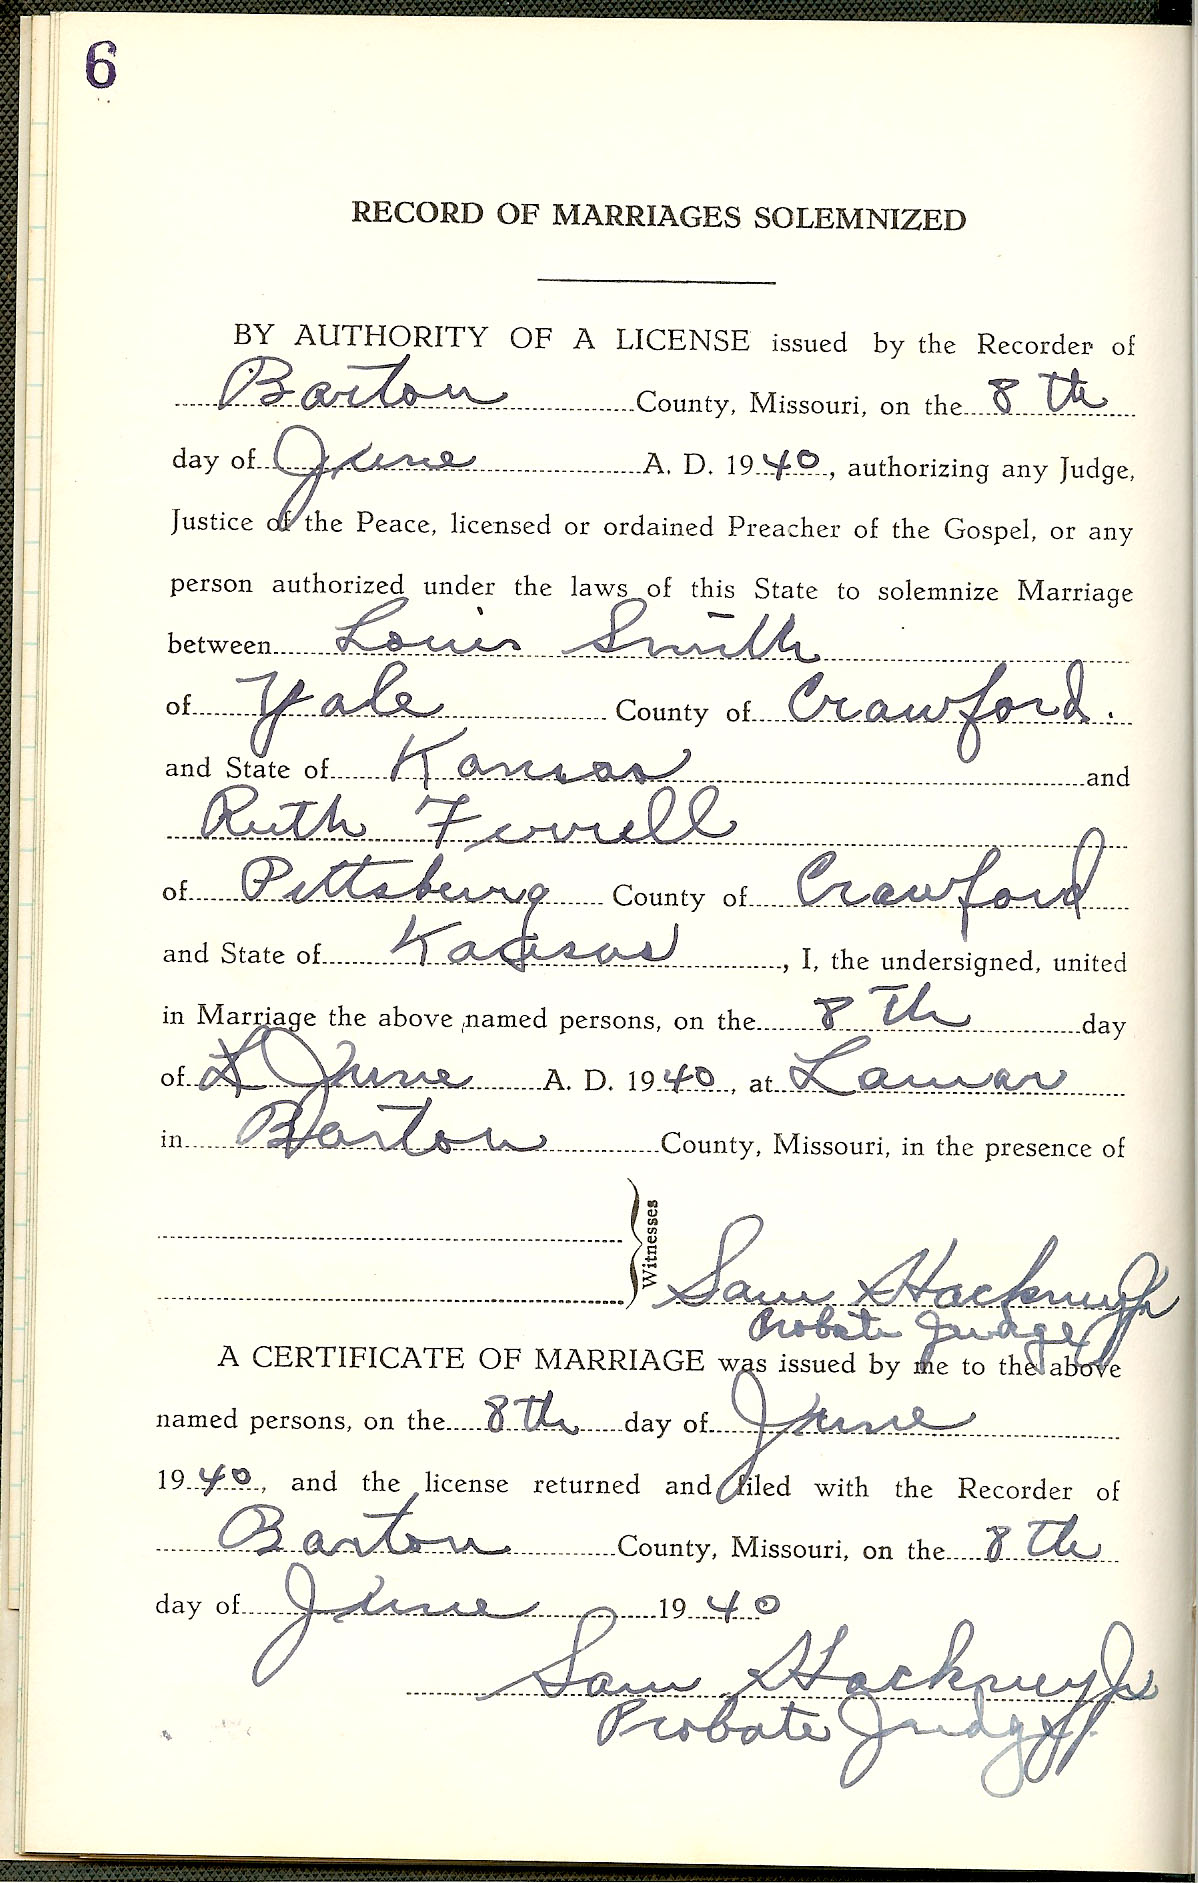 6
RECORD OF MARRIAGES SOLEMNIZED
BY AUTHORITY OF A LICENSE issued by the Recorder of
Barton County, Missouri, on the 8th
day of June A. D. 1940, authorizing any Judge,
Justice of the Peace, licensed or ordained Preacher of the Gospel, or any
person authorized under the laws of this State to solemnize Marriage
between Louis Smith
of Yale County of Crawford.
and State of Kansas and
Ruth
of Pittsburg County of Crawford
and State of Kansas, I, the undersigned, united
in Marriage the above named persons, on the 8th day
of June A. D. 1940, at Lamar
in Barton County, Missouri, in the presence of
Witnesses
Sam Hackney Jr
Probate Judge
A CERTIFICATE OF MARRIAGE was issued by me to the above
named persons, on the 8th day of June
1940, and the license returned and filed with the Recorder of
Barton County, Missouri, on the 8th
day of June 1940
Sam Hackney Jr
Probate Judge.